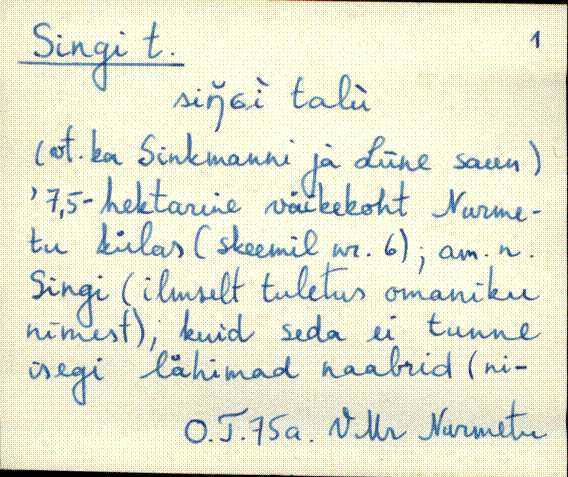 Singi t. 1
siŋ̆ɢì talù
(vt. ka Sinkmanni ja Liine saun)
'7,5-hektariine väikekoht Nurme-
tu külas (skeemil nr. 6); am. n.
Singi (ilmselt tuletus omaniku
nimest), kuid seda ei tunne
isegi lähimad naabrid (ni-
O.T. 75a. VMr Nurmetu